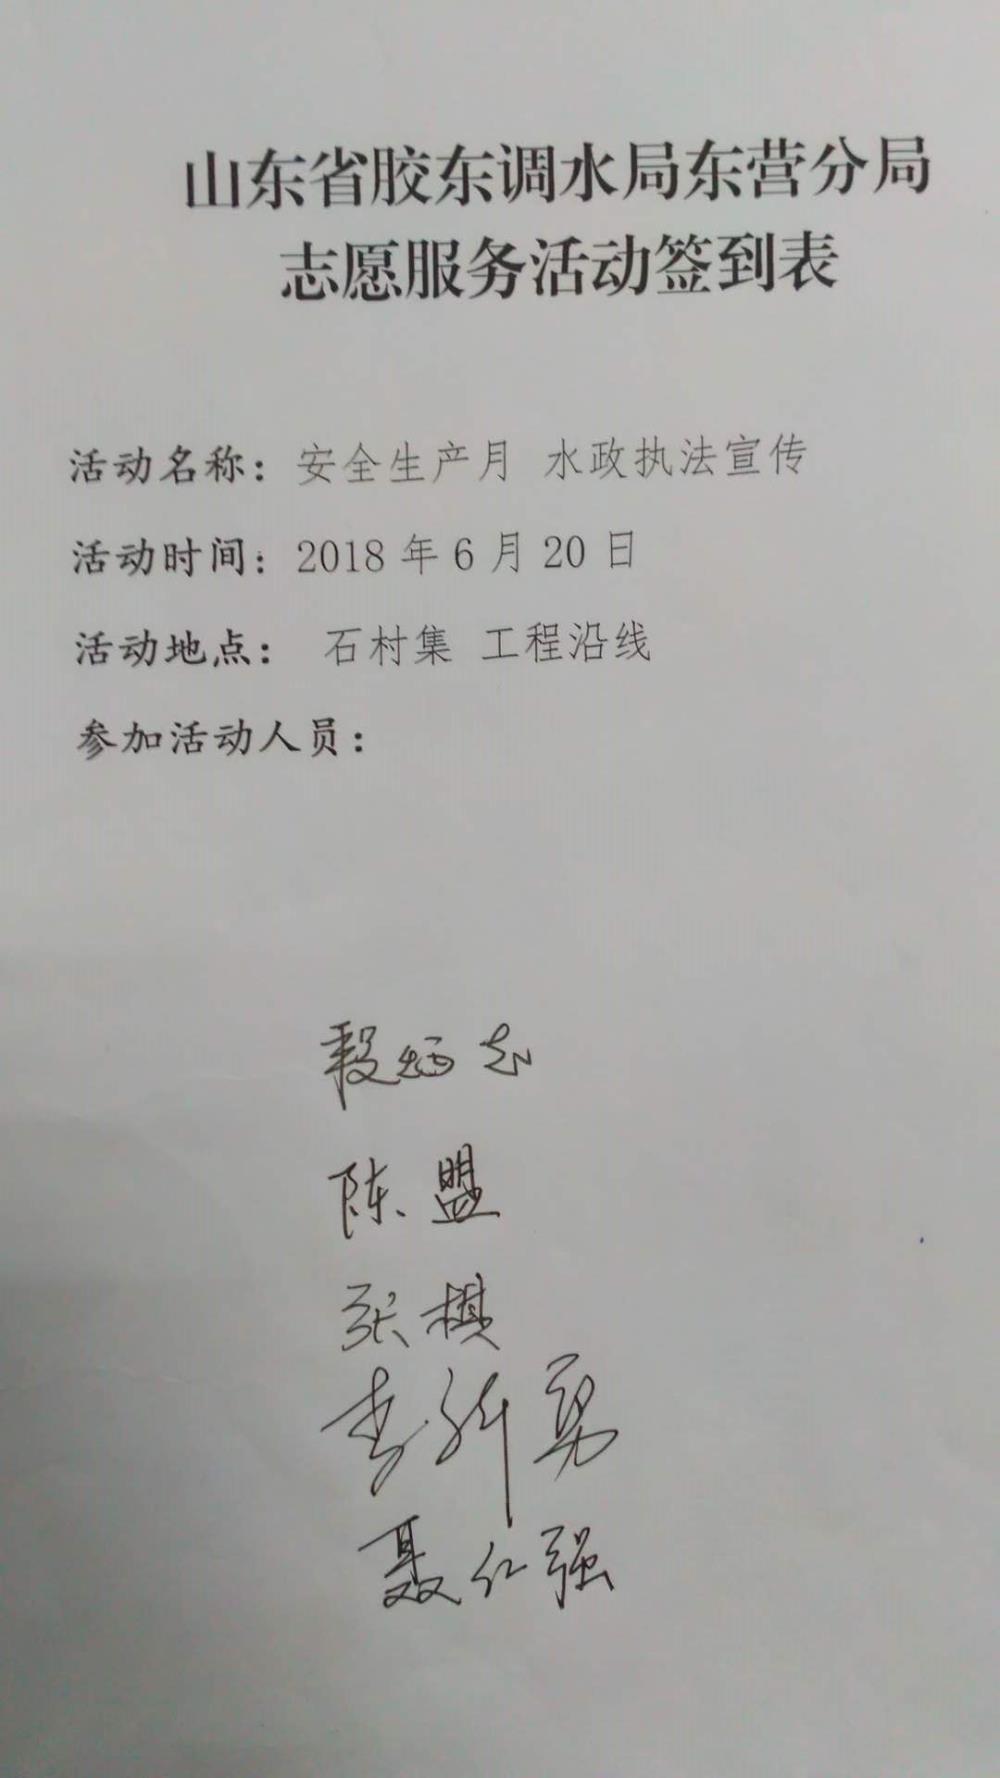 山东省胶东调水局东营分局
志愿服务活动签到表
活动名称：安全生产月 水政执法宣传
活动时间：2018年6月20日
活动地点： 石村集 工程沿线
参加活动人员：
段炳志
陈盟
张棋
李新勇
聂仁强